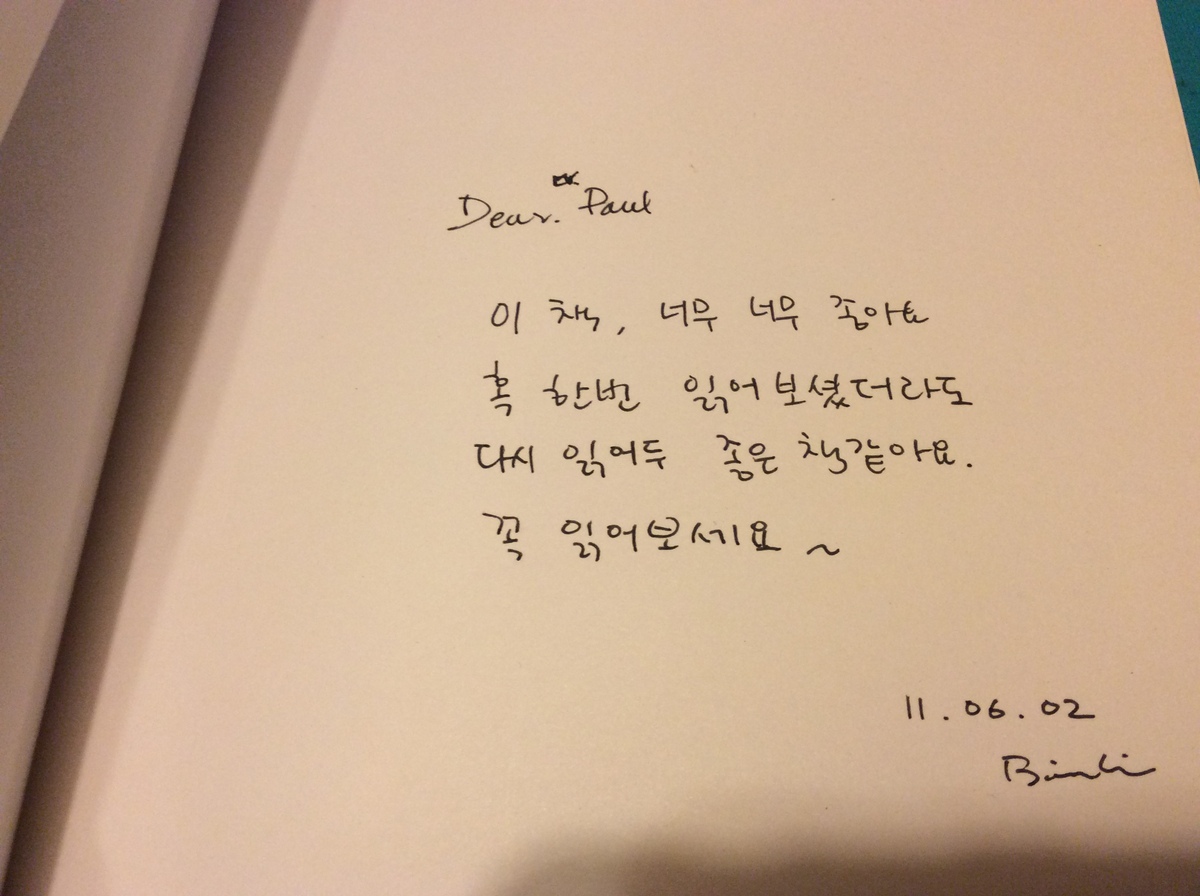 Dear. Paul
이 책, 너무 너무 좋아요
혹 한번 읽어보셨더라도
다시 읽어두 좋은 책같아요.
꼭 읽어보세요 ~
11.06.02